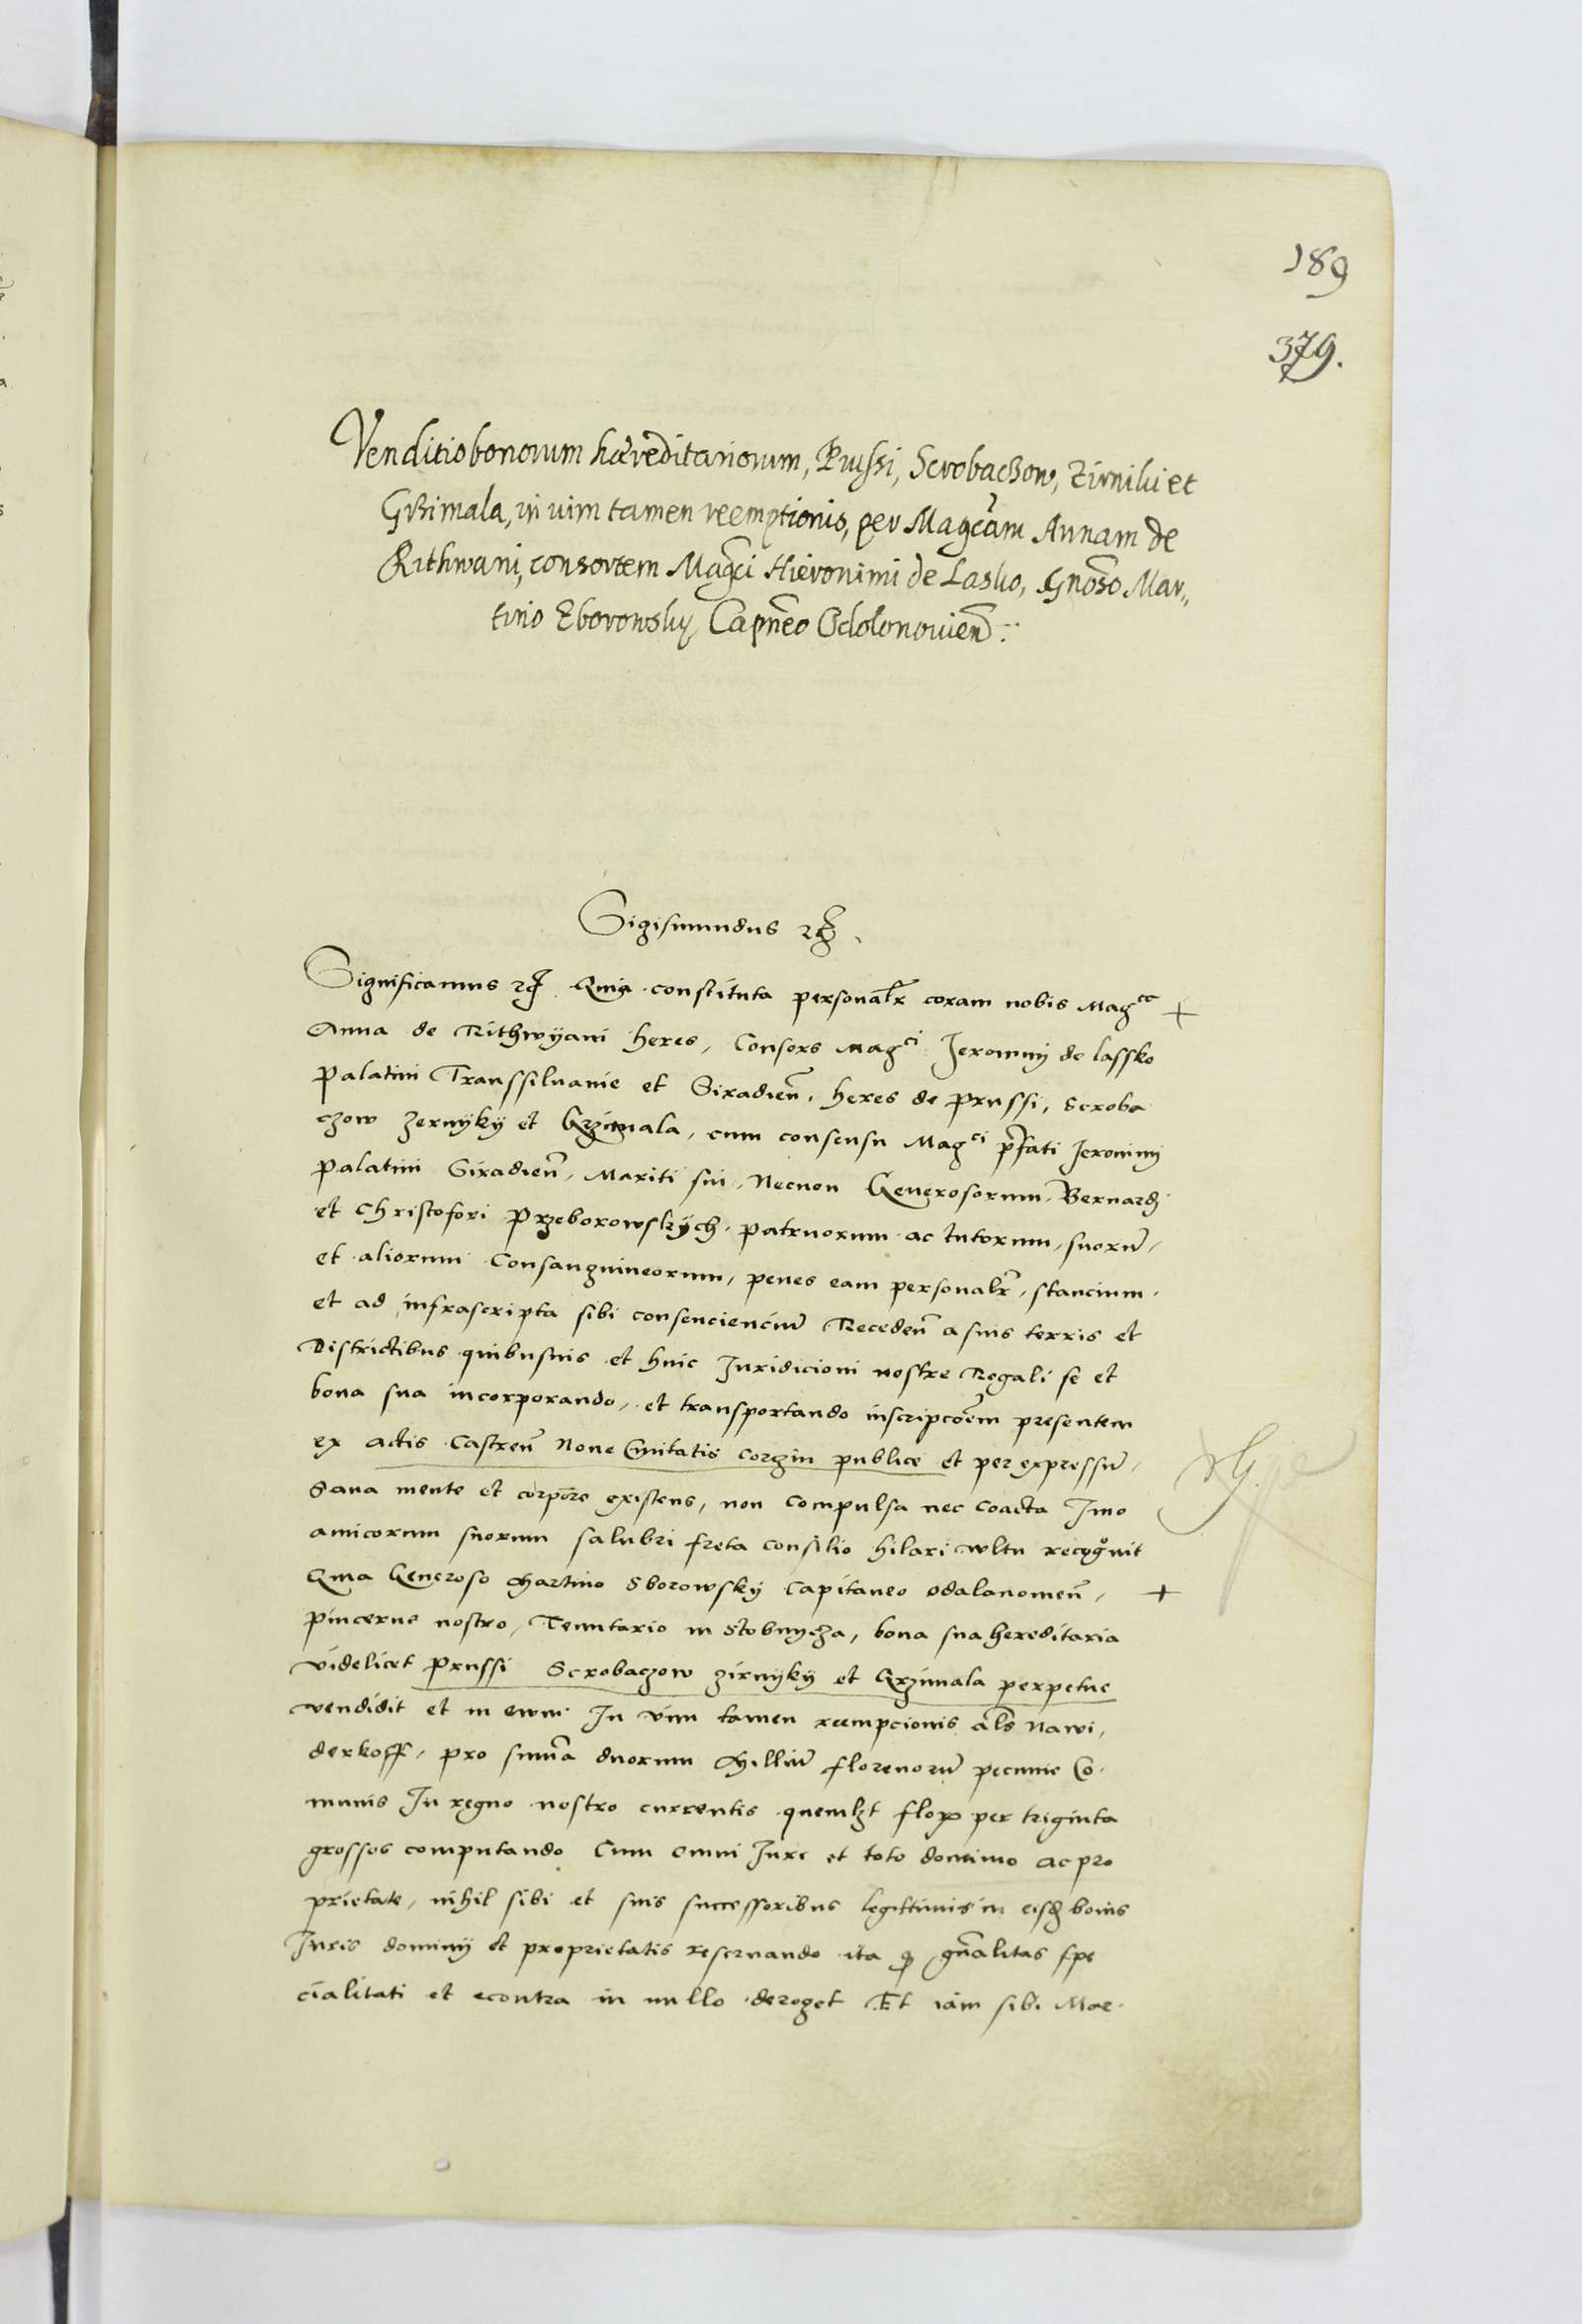 189
379.
Venditio bonorum hæreditariorum, Prussi, Scrobaczow, Zirniki et
Grzimala, in vim tamen reemptionis, per Magcam Annam de
Rithwani, consortem Magci Hieronimi de Lasko, Gnoso Mar„
tino Zborowsky Capneo Odolonouien̄:
Sigismundus etc.
Significamus etc. Quia constituta personalr coram nobis Magca
Anna de Rithwyani heres, Consors Magci Jeronimj de lassko
palatini Transsiluanie et Siradien̄, heres de prussi, Scroba
czow zernyky et Grzimala, cum consensu Magci p̄fati Jeronimj
palatini Siradien̄, Mariti sui, Necnon Generosorum Bernardj
et Christofori Przeborowskych patruorum ac tutorum, suorū,
et aliorum Consanguineorum, penes eam personalr, stancium,
et ad infrascripta sibi consenciencium Receden̄ a suis terris et
Districtibus quibusuis et huic Juridicioni nostre Regali se et
bona sua incorporando, et transportando inscripcōem presentem
ex actis Castren̄ Noue Ciuitatis corzin publice et per expressum,
Sana mente et corpore existens, non compulsa nec coacta Imo
amicorum suorum salubri freta consilio hilari wltu recognouit
Quia Generoso Martino Sborowsky Capitaneo odalanouien̄,
pincerne nostro, Tenutario in Stobnycza, bona sua hereditaria
videlicet prussi Scrobaczow zirnyky et Grzimala perpetue
vendidit et in ewm In vim tamen reempcionis als Nawi,
derkoff, pro summa duorum Millium florenorū pecunie Co-
munis In regno nostro currentis quemlzt flor per triginta
grossos computando Cum omni Jure et toto dominio ac pro
prietate, nihil sibi et suis successoribus legittimis in eisd bonis
Juris dominij et proprietatis reseruando ita q gn̄alitas spe
cialitati et econtra in nullo deroget Et iam sibi Mar-